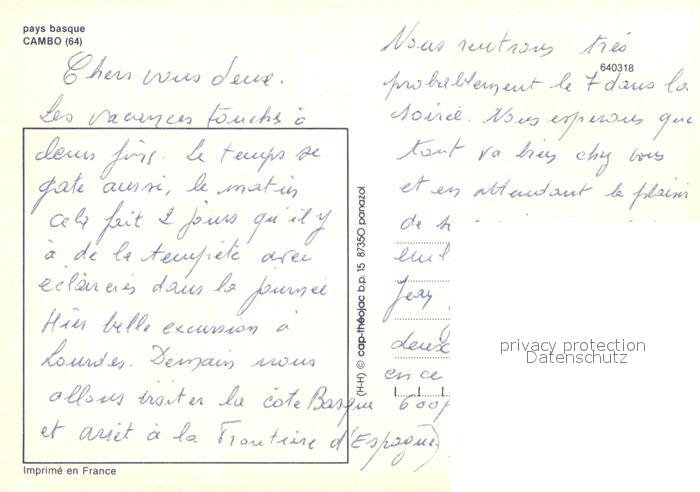 pays basque
CAMBO (64)
Chers vous deux.
Les vacances touche à
leurs fins. Le temps se
gate aussi, le matin
cela fait 2 jours qu'il y
à de la tempête avec
éclaircies dans la journée
Hier belle excursion à
Lourdes. Demain nous
allons visiter la côte Basque
et arrêt à la Frontière d'Espagne
Imprimé en France
(H-H) © cap-théojac b.p. 15 87350 panazol
Nous rentrons très
640318
probablement le 7 dans la
soirée. Nous esperons que
tout va bien chez vous
et en attendant le plaisir
de
Jean
deux
en ce
privacy protection
Datenschutz